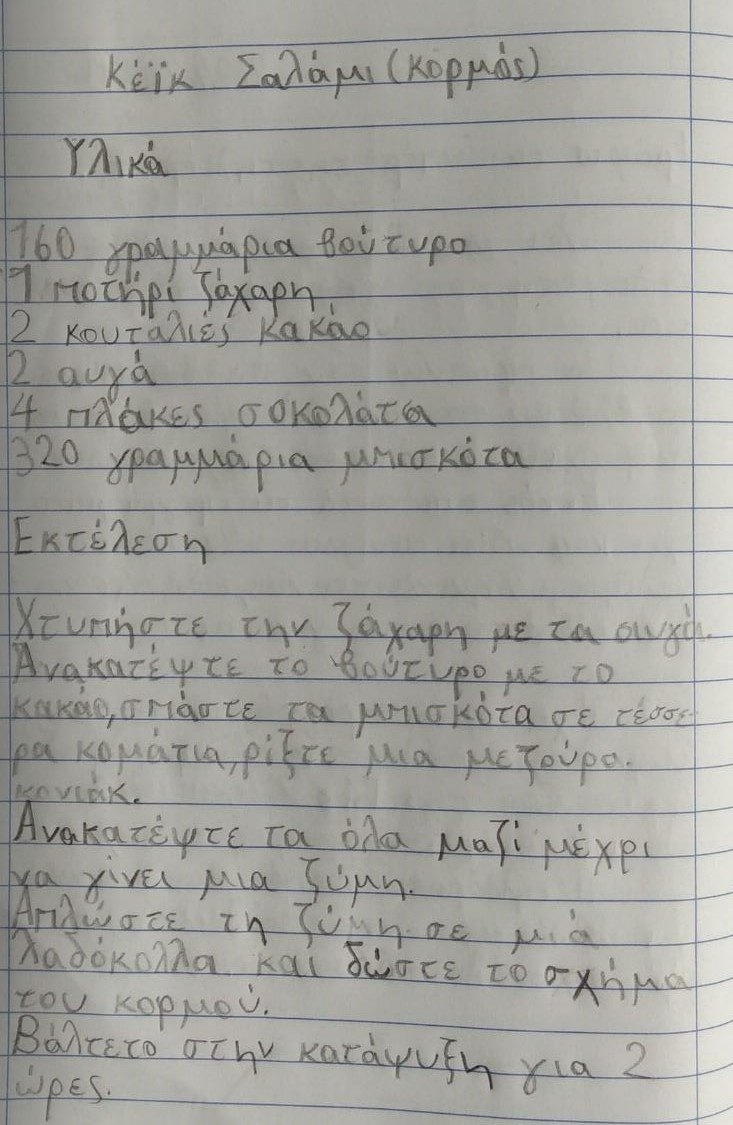 Κέϊκ Σαλάμι (κορμός)
Υλικά
160 γραμμάρια βούτυρο
1 ποτήρι ζάχαρη
2 κουταλιές κακάο
2 αυγά
4 πλάκες σοκολάτα
320 γραμμάρια μπισκότα
Εκτέλεση
Χτυπήστε την ζάχαρη με τα αυγά.
Ανακατέψτε το βούτυρο με το
κακάο, σπάστε τα μπισκότα σε τέσσε
ρα κομάτια, ρίξτε μια μεζούρα
κονιάκ.
Ανακατέψτε τα όλα μαζί μέχρι
να γίνει μια ζύμη.
Απλώστε τη ζύμη σε μιά
λαδόκολλα και δώστε το σχήμα
του κορμού.
Βάλτετο στην κατάψυξη για 2
ώρες.